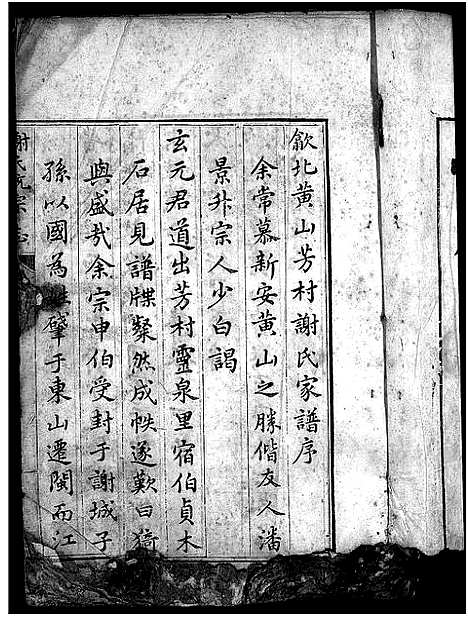 歙北黄山芳村謝氏家譜序
余常慕新安黄山之勝偕友人潘
景升宗人少白謁
玄元君道出芳村靈泉里宿伯貞木
石居見譜牒燦然成帙遂歎曰猗
與盛哉余宗申伯受封于謝城子
孫以國為姓肇于東山遷閩而江
謝氏統宗志